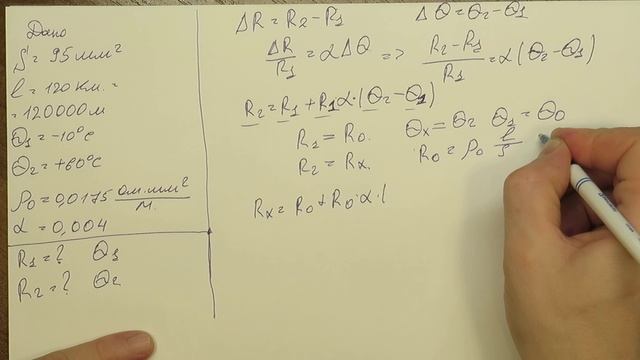 Дано
S = 95 мм²
l = 120 км. =
= 120000 м
Θ1 = -10°C
Θ2 = +60°C
ρ0 = 0,0175 ом.мм²/м.
α = 0,004
R1 = ? Θ1
R2 = ? Θ2
ΔR = R2 - R1 ΔΘ = Θ2 - Θ1
ΔR/R1 = αΔΘ => R2 - R1/R1 = α(Θ2 - Θ1)
R2 = R1 + R1α·(Θ2 - Θ1)
R1 = R0. Θx = Θ2 Θ1 = Θ0
R2 = Rx. R0 = ρ0 l/S
Rx = R0 + R0·α·(